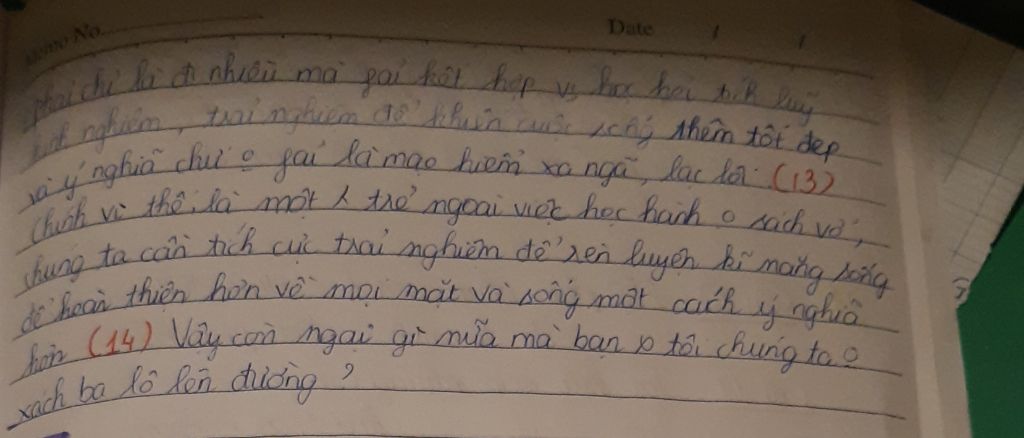 Memo No.
Date / /
phải chỉ là đi nhiều mà gai kết hợp vs học hỏi tích luỹ
kinh nghiệm, trải nghiệm để khiến cuộc sống thêm tốt đẹp
và ý nghĩa chứ o gai là mạo hiểm xa ngã, lạc lối (13)
Chính vì thế, là một trẻ ngoài việc học hành o sách vở,
chúng ta cần tích cực trải nghiệm để rèn luyện kĩ năng sống
để hoàn thiện hơn về mọi mặt và sống một cách ý nghĩa
hơn (14) Vậy còn ngại gì nữa mà bạn tôi chúng ta o
xách ba lô lên đường ?